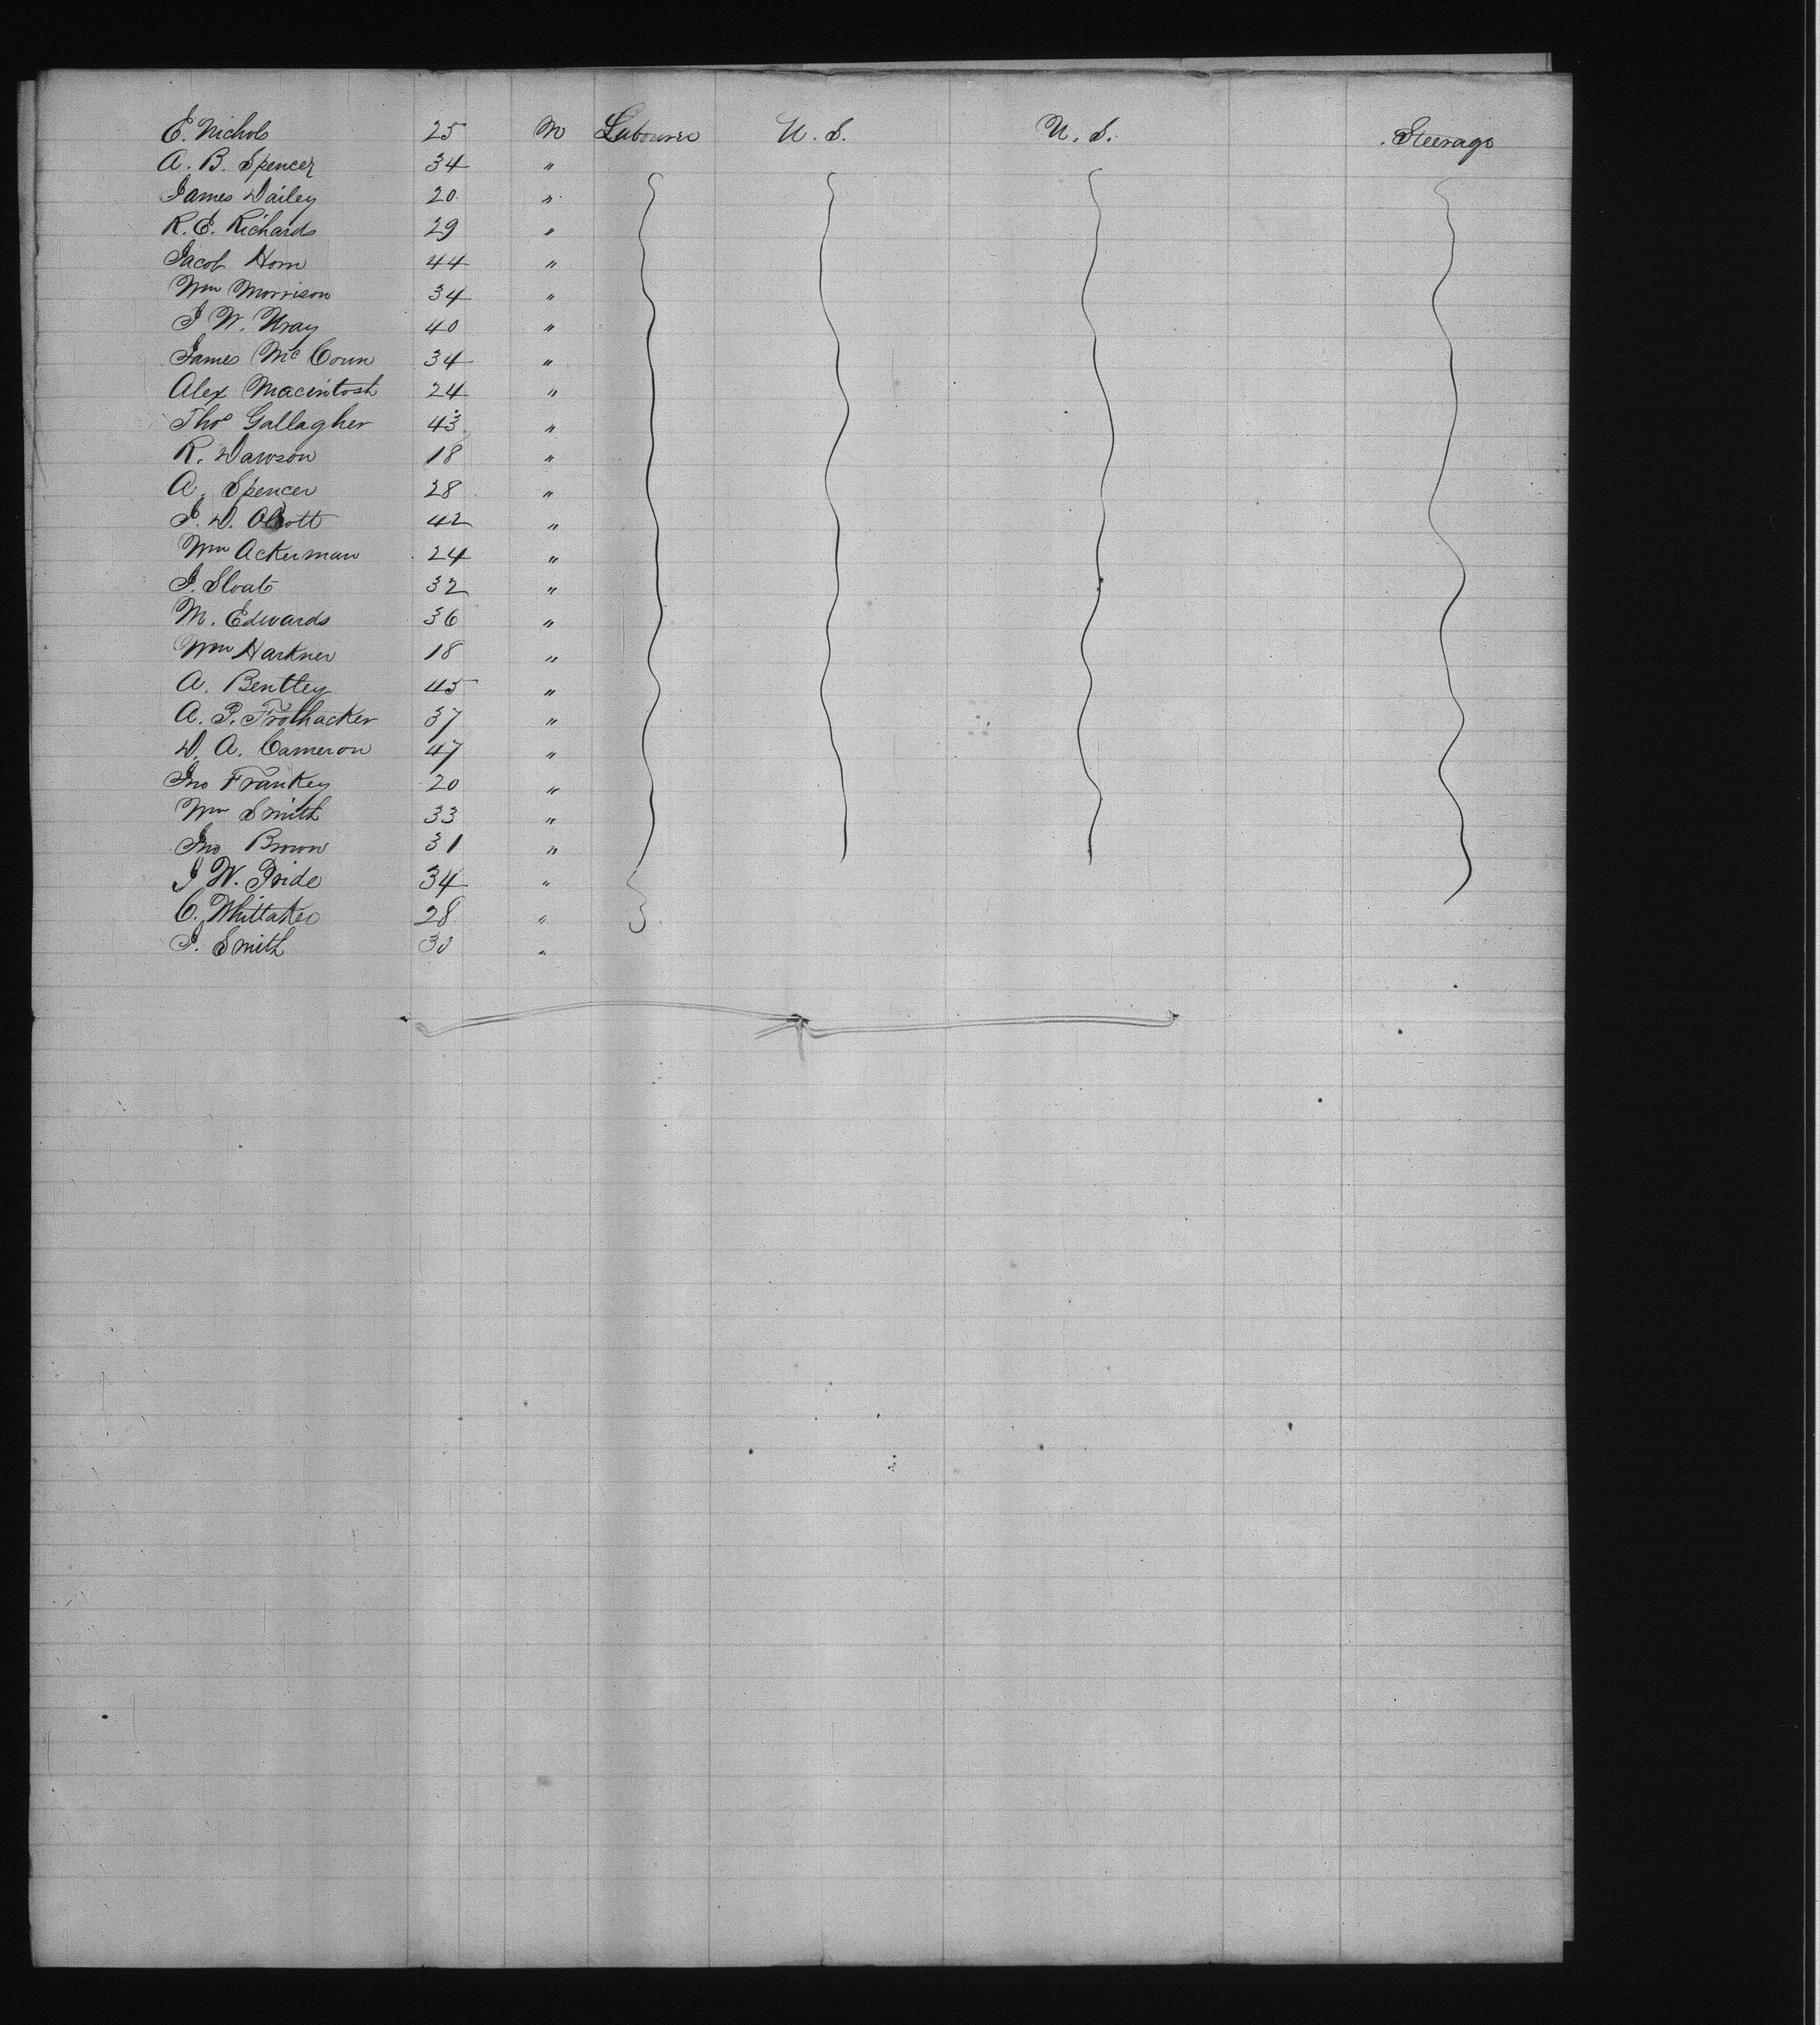 E. Nichols 25 M Labourer U. S. U. S. Steerage
A. B. Spencer 34 "
James Dailey 20 "
R. E. Richards 29 "
Jacob Horn 44 "
Wm Morrison 34 "
J W. Wray 40 "
James McCoun 34 "
Alex Macintosh 24 "
Thos Gallagher 43 "
R. Dawson 18 "
A. Spencer 28 "
J. D. 42 "
Wm Ackerman 24 "
J. Sloats 32 "
M. Edwards 36 "
Wm Harkner 18 "
A. Bentley 45 "
A. P. Frothacker 37 "
D. A. Cameron 47 "
Jno Frankey 20 "
Wm Smith 33 "
Jno Brown 31 "
J W. Pride 34 "
C. Whittaker 28 "
J. Smith 30 "